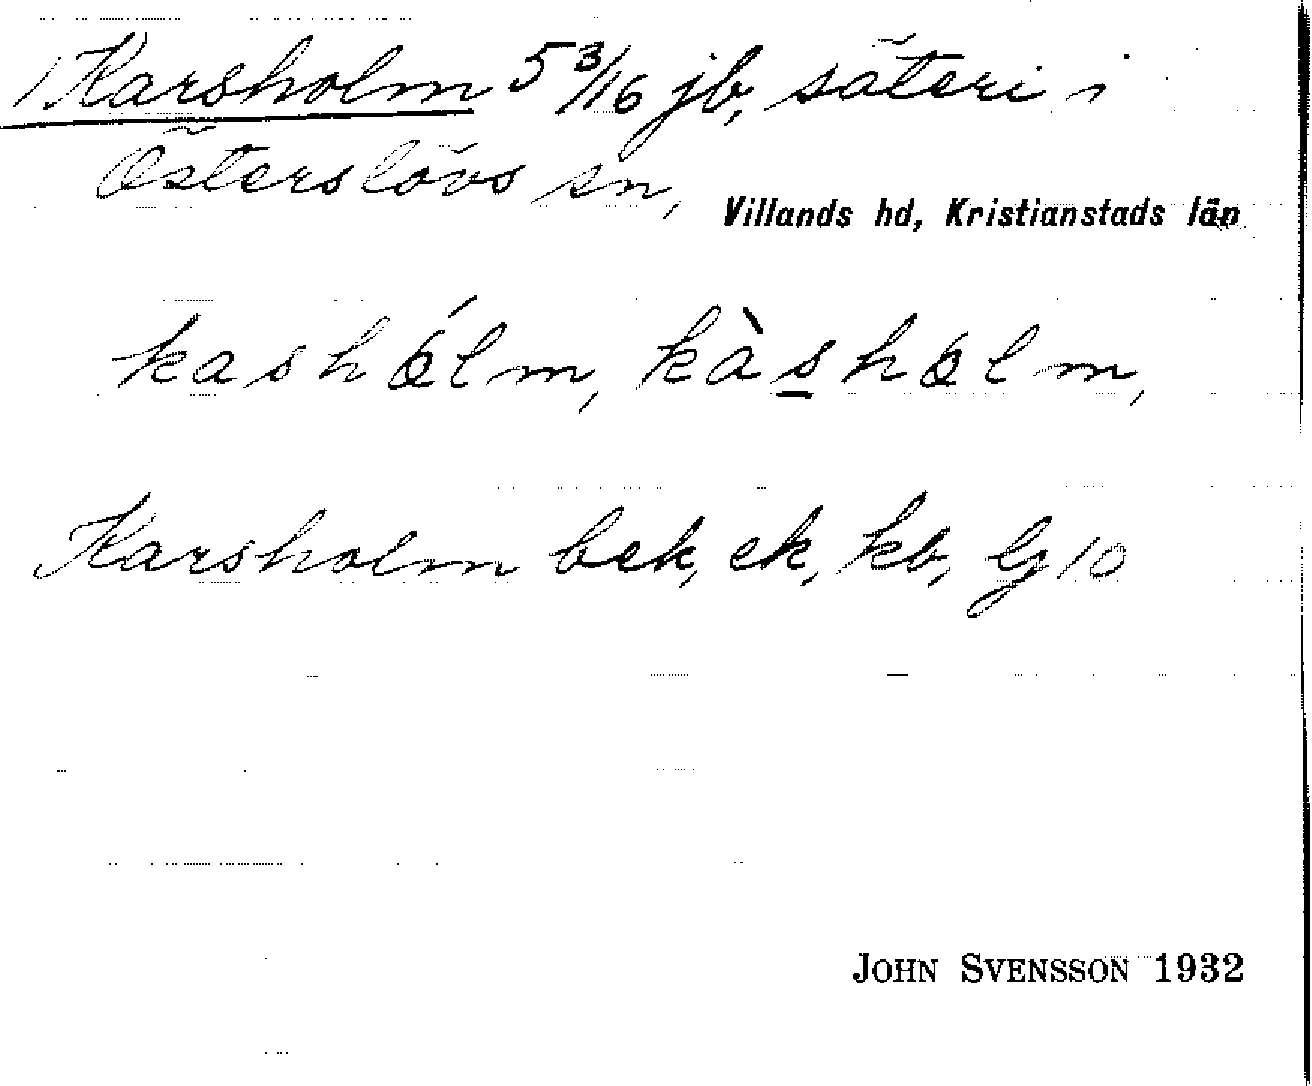 Karsholm 5 3/16 jb, säteri i
Österslövs sn,
Villands hd, Kristianstads län
kashólm, kàsholm,
Karsholm bek, ek, kb, lg 10
JOHN SVENSSON 1932